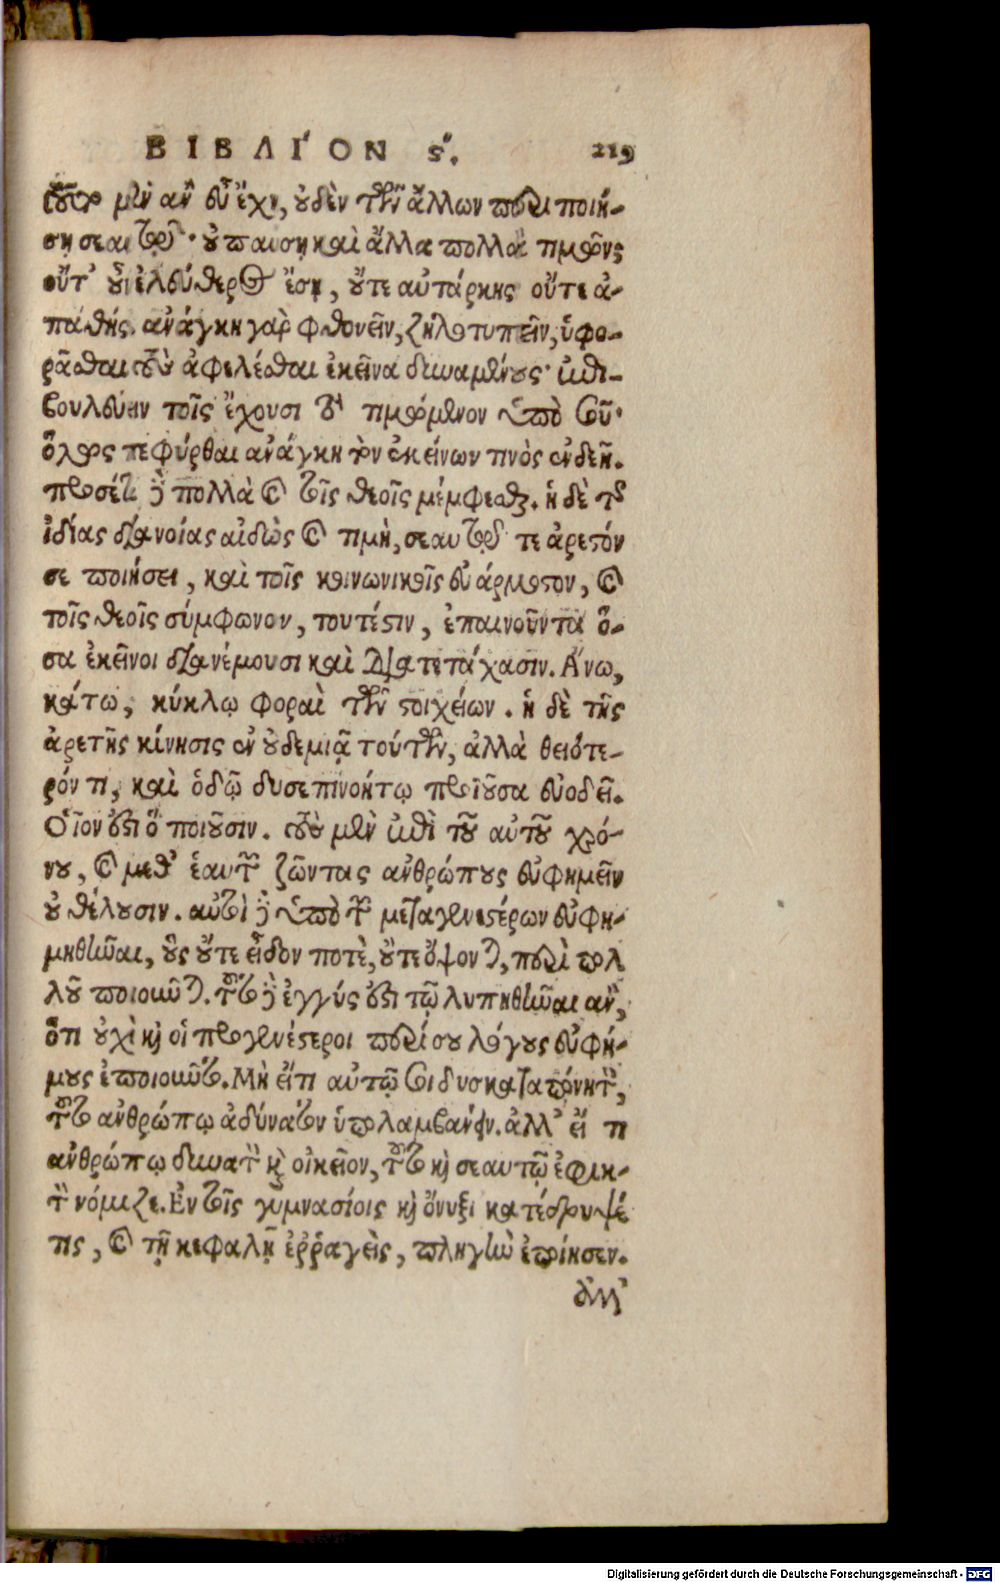 ΒΙΒΛΙ΄ΟΝ ϛ΄. 219
τοῦτο μὲν ἂν εὖ ἔχῃ, οὐδὲν τῶν ἄλλων περιποιή-
σῃ σεαυτῷ· οὐ παύσῃ καὶ ἄλλα πολλὰ τιμῶν;
οὔτ' οὖν ἐλεύθερος ἔσῃ, οὔτε αὐτάρκης οὔτε ἀ-
παθής. ἀνάγκη γὰρ φθονεῖν, ζηλοτυπεῖν, ὑφο-
ρᾶσθαι τοὺς ἀφελέσθαι ἐκεῖνα δυναμένους· ἐπι-
βουλεύειν τοῖς ἔχουσι τὸ τιμώμενον ὑπὸ σοῦ·
ὅλως πεφύρθαι ἀνάγκη τὸν ἐκείνων τινὸς ἐνδεῆ.
προσέτι δὲ πολλὰ καὶ τοῖς θεοῖς μέμφεσθαι. ἡ δὲ τῆς
ἰδίας διανοίας αἰδὼς καὶ τιμὴ, σεαυτῷ τε ἀρεστόν
σε ποιήσει, καὶ τοῖς κοινωνικοῖς εὐάρμοστον, καὶ
τοῖς θεοῖς σύμφωνον, τουτέστιν, ἐπαινοῦντα ὅ-
σα ἐκεῖνοι διανέμουσι καὶ Διατετάχασιν. Ἄνω,
κάτω, κύκλῳ φοραὶ τῶν στοιχείων. ἡ δὲ τῆς
ἀρετῆς κίνησις ἐν οὐδεμιᾷ τούτων, ἀλλὰ θειότε-
ρόν τι, καὶ ὁδῷ δυσεπινοήτῳ προϊοῦσα εὐοδεῖ.
Οἷόν ἐστι ὃ ποιοῦσιν. τοὺς μὲν ἐπὶ τοῦ αὐτοῦ χρό-
νου, καὶ μεθ' ἑαυτῶν ζῶντας ἀνθρώπους εὐφημεῖν
οὐ θέλουσιν. αὐτοὶ δὲ ὑπὸ τῶν μεταγενεστέρων εὐφη-
μηθῆναι, οὓς οὔτε εἶδόν ποτὲ, οὔτε ὄψονται, περὶ πολ
λοῦ ποιοῦνται. τοῦτο δὲ ἐγγύς ἐστι τῷ λυπηθῆναι ἂν,
ὅτι οὐχὶ καὶ οἱ προγενέστεροι περί σου λόγους εὐφή-
μους ἐποιοῦντο. Μὴ εἴ τι αὐτῷ σοι δυσκαταπόνητον,
τοῦτο ἀνθρώπῳ ἀδύνατον ὑπολαμβάνειν. ἀλλ' εἴ τι
ἀνθρώπῳ δυνατὸν καὶ οἰκεῖον, τοῦτο καὶ σεαυτῷ ἐφικ-
τὸν νόμιζε. Ἐν τοῖς γυμνασίοις καὶ ὄνυξι κατέδρυψέ
τις, καὶ τῇ κεφαλῇ ἐῤῥαγεὶς, πληγὴν ἐποίησεν.
ἀλλ'
Digitalisierung gefördert durch die Deutsche Forschungsgemeinschaft - DFG